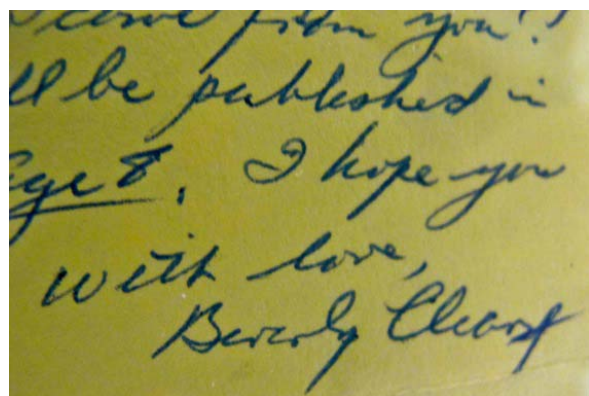 from you!
ll be published in
Age 8. I hope you
with love,
Beverly Cleary